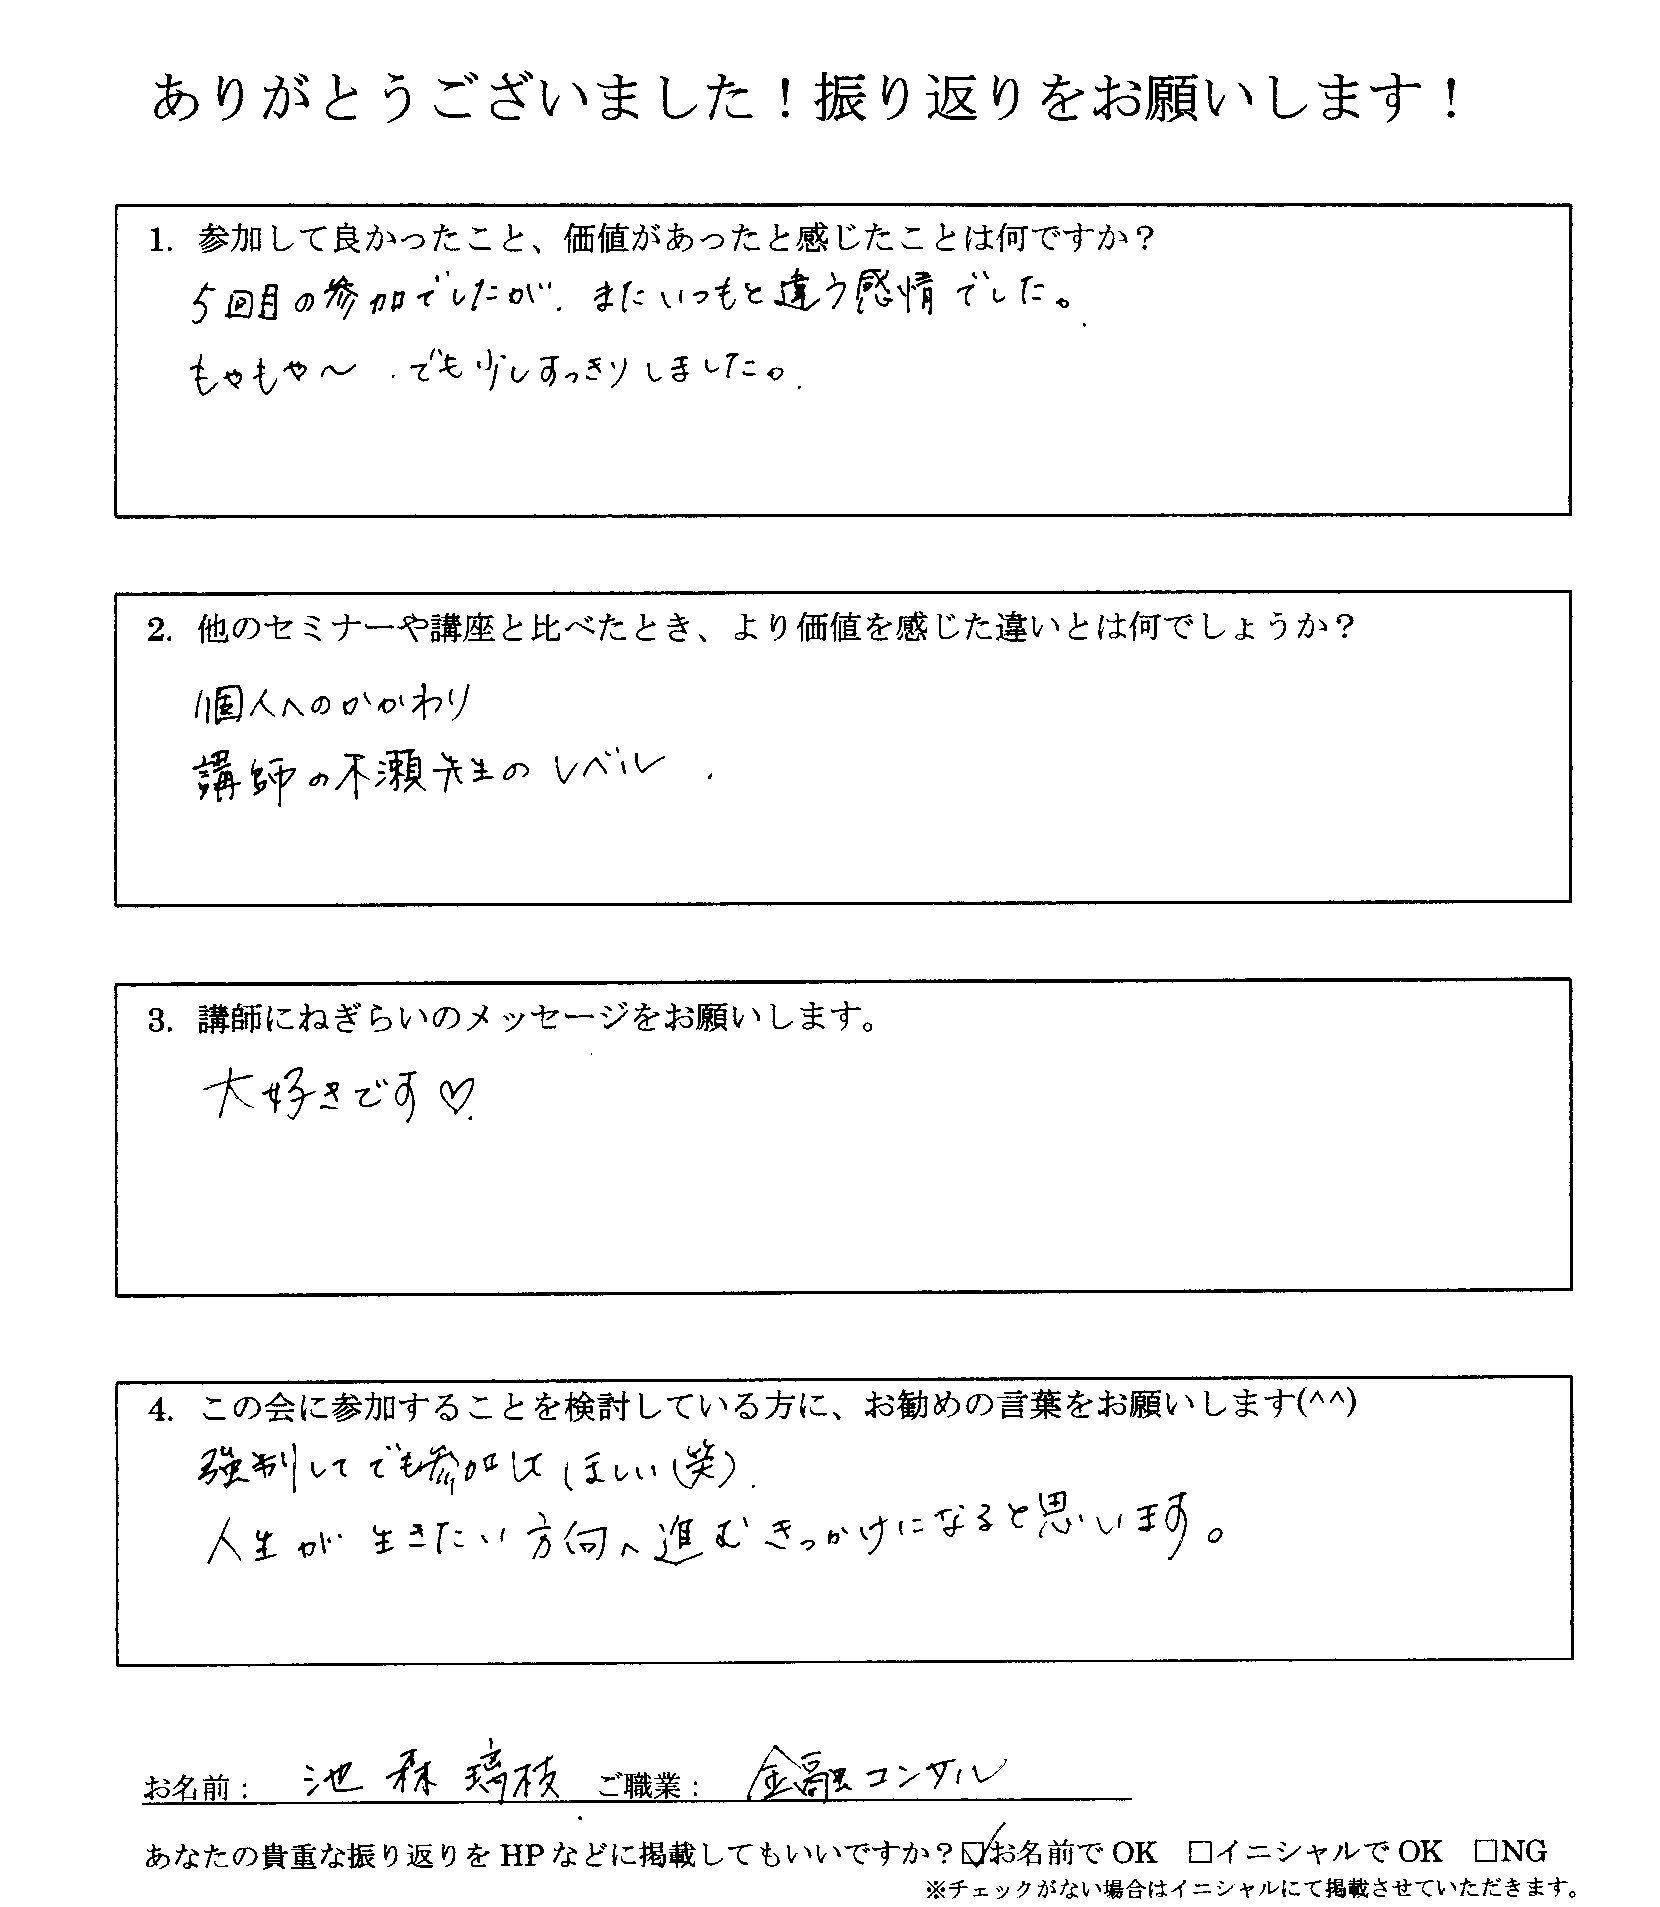 ありがとうございました！振り返りをお願いします！
1. 参加して良かったこと、価値があったと感じたことは何ですか？
5回目の参加でしたが、またいつもと違う感情でした。
もやもや〜、でも少しすっきりしました。
2. 他のセミナーや講座と比べたとき、より価値を感じた違いとは何でしょうか？
個人へのかかわり
講師の木瀬先生のレベル
3. 講師にねぎらいのメッセージをお願いします。
大好きです♡
4. この会に参加することを検討している方に、お勧めの言葉をお願いします(^^)
強制してでも参加してほしい(笑)
人生が生きたい方向へ進むきっかけになると思います。
お名前： 池森璃枝 ご職業： 金融コンサル
あなたの貴重な振り返りを HP などに掲載してもいいですか？☑お名前で OK □イニシャルで OK □NG
※チェックがない場合はイニシャルにて掲載させていただきます。